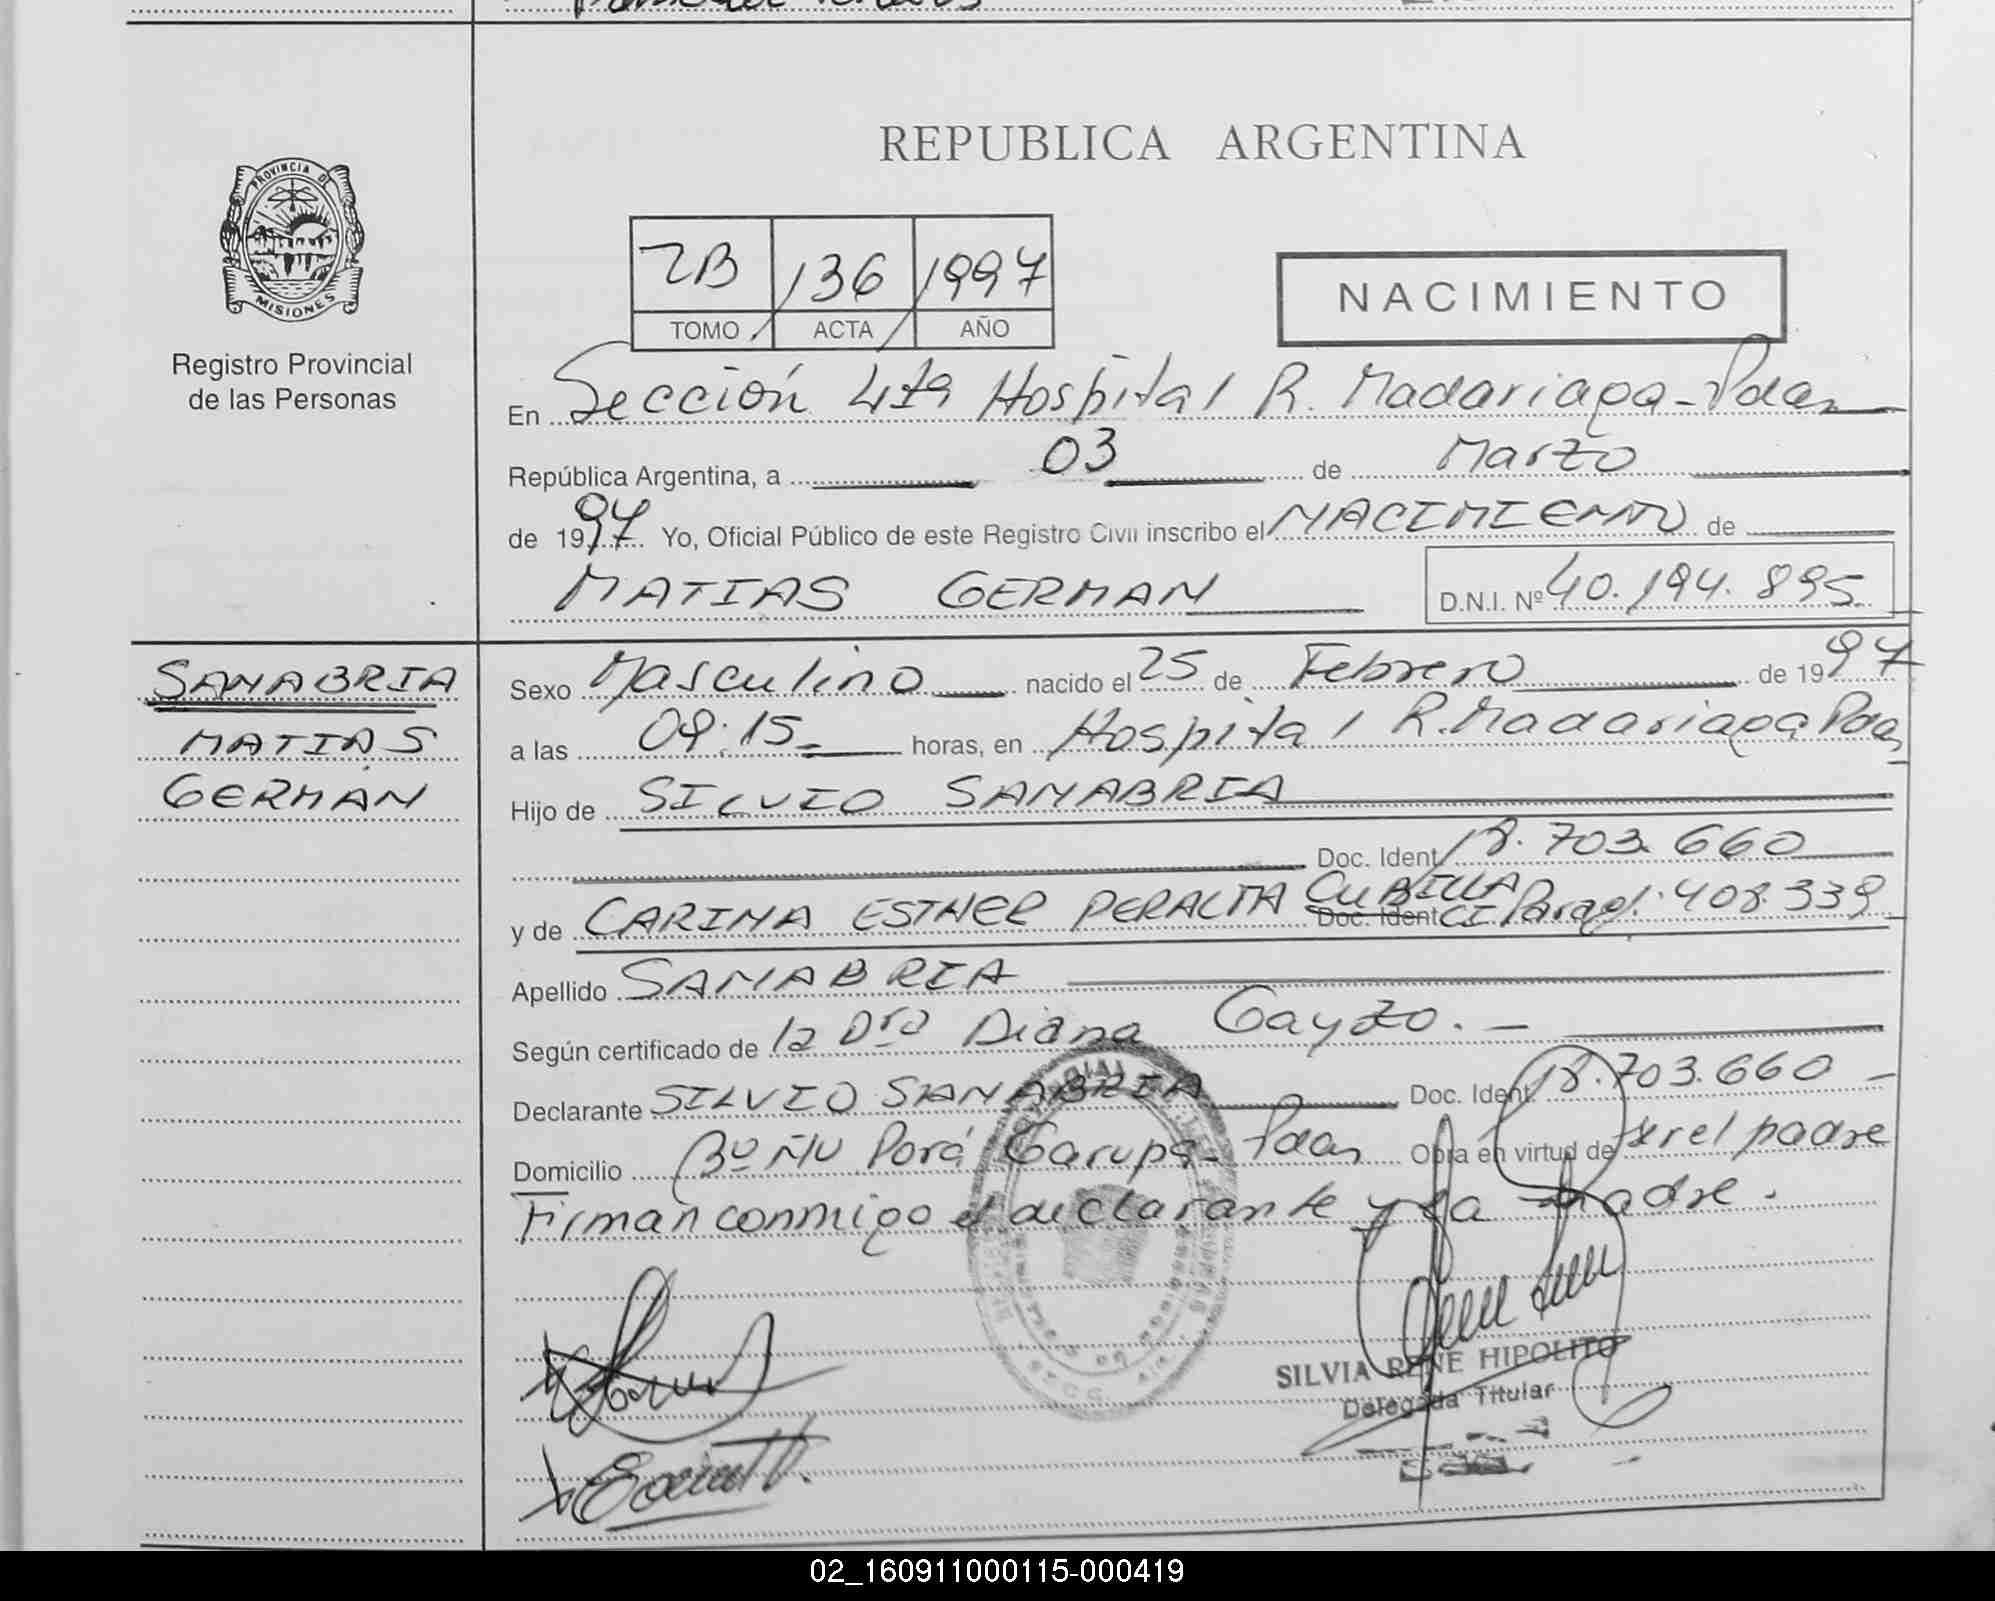 REPUBLICA ARGENTINA
PROVINCIA DE
MISIONES
Registro Provincial
de las Personas
2B 136 1997
TOMO ACTA AÑO
NACIMIENTO
En Sección 4ta Hospital R. Madariaga - Pdas
República Argentina, a 03 de Marzo
de 1997 Yo, Oficial Público de este Registro Civil inscribo el NACIMIENTO de
MATIAS GERMAN D.N.I. Nº 40.194.895
SANABRIA
MATIAS
GERMAN
Sexo Masculino nacido el 25 de Febrero de 1997
a las 09:15 horas, en Hospital R. Madariaga Pdas
Hijo de SILVIO SANABRIA
Doc. Ident. 18.703.660
y de CARINA ESTHER PERALTA CUBILLA Doc. Ident CI Parag. 408.339
Apellido SANABRIA
Según certificado de la Dra Diana Gayzo. -
Declarante SILVIO SANABRIA Doc. Ident. 18.703.660 -
Domicilio Bº Ñu Porá Garupá - Pdas Obra en virtud de ser el padre
Firman conmigo el declarante y la madre.
SILVIA RENE HIPOLITO
Delegada Titular
02_160911000115-000419